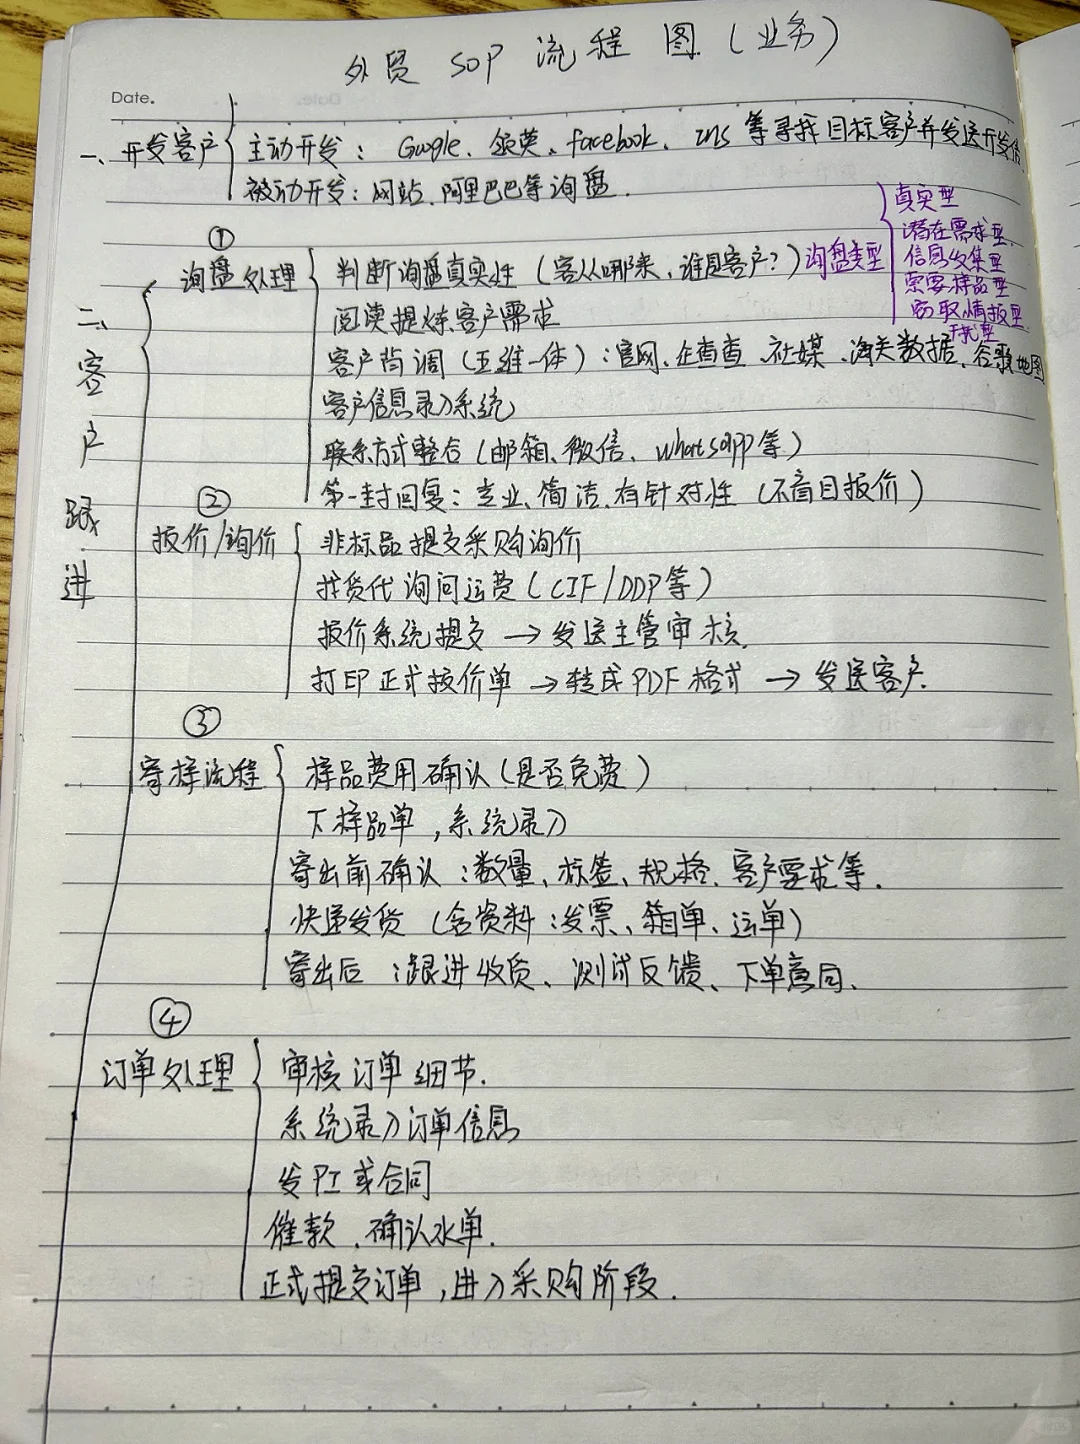 外贸 SOP 流程图（业务）
Date.
一、开发客户
主动开发：Google、领英、facebook、ins 等寻找目标客户并发送开发信
被动开发：网站、阿里巴巴等询盘.
二、客户跟进
①
询盘处理
判断询盘真实性（客从哪来，谁是客户？）
询盘类型
真实型
潜在需求型
信息收集型
索要样品型
窃取情报型
干扰型
阅读提炼客户需求
客户背调（五维一体）：官网、企查查、社媒、海关数据、谷歌地图
客户信息录入系统
联系方式整合（邮箱、微信、whatsapp等）
第一封回复：专业、简洁、有针对性（不盲目报价）
②
报价/询价
非标品提交采购询价
找货代询问运费（CIF/DDP等）
报价系统提交 → 发送主管审核.
打印正式报价单 → 转成PDF格式 → 发送客户.
③
寄样流程
样品费用确认（是否免费）
下样品单，系统录入
寄出前确认：数量、标签、规格、客户要求等.
快递发货（含资料：发票、箱单、运单）
寄出后：跟进收货、测试反馈、下单意向、
④
订单处理
审核订单细节.
系统录入订单信息
发PI或合同
催款、确认水单.
正式提交订单，进入采购阶段.